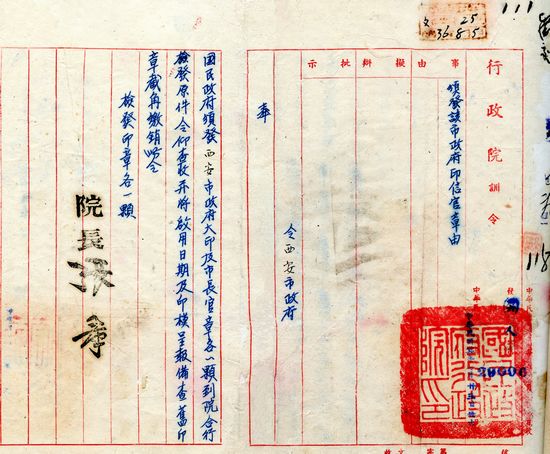 25
36.8.5
111
行政院訓令
事由
擬辦
批示
頒發該市政府印信官章由
令西安市政府
奉
國民政府頒發西安市政府大印及市長官章各一顆到院合行
檢發原件令仰查收并將啟用日期及印模呈報備查舊印
章截角繳銷此令
檢發印章各一顆
院長張羣